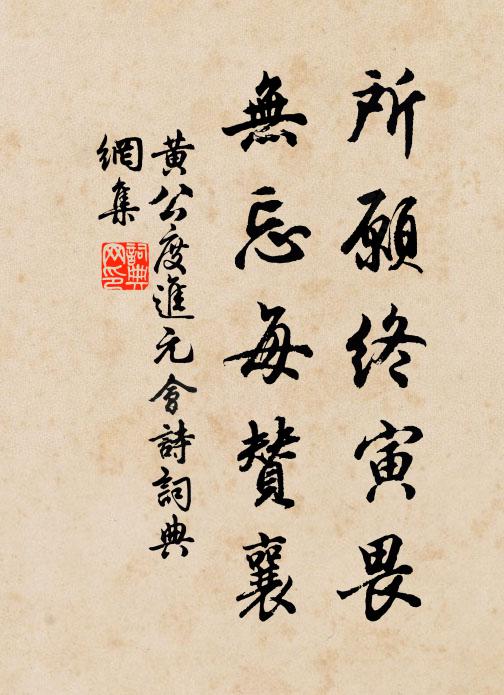 所願終寅畏
無忘每贊襄
黄公度進元會詩詞典
網集
詞典網印